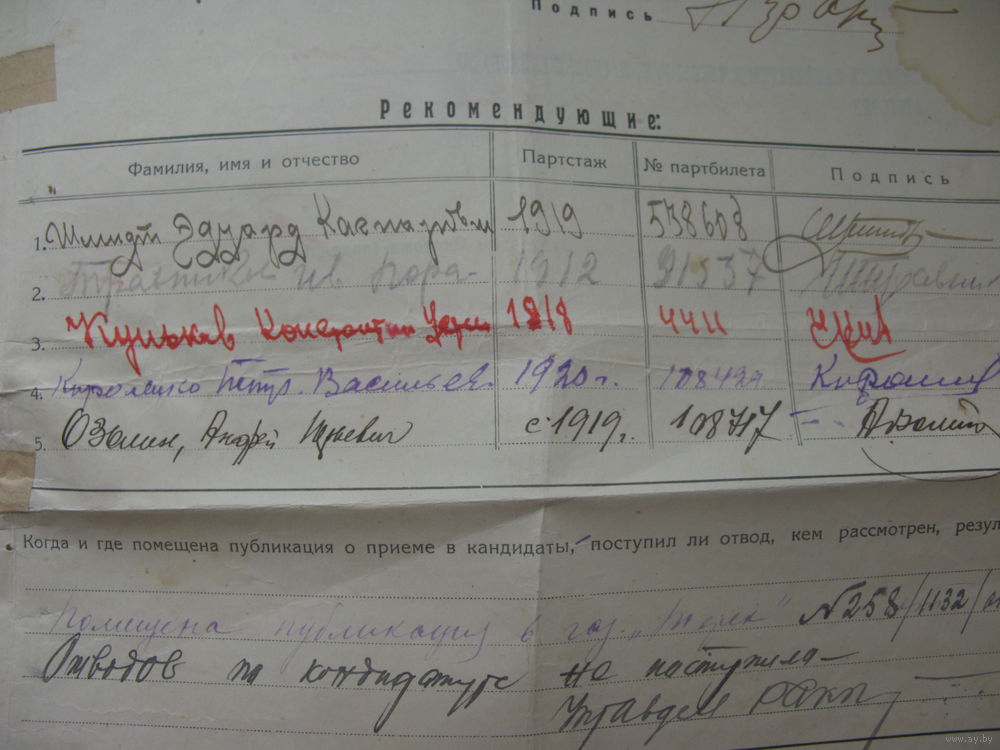 Подпись
Рекомендующие:
Фамилия, имя и отчество Партстаж № партбилета Подпись
1. Шмидт Эдуард Каспарович 1919 538608
2. 1912 91537
3. Константин 1918 4411
4. Короленко Петр. Васильев. 1920 г. 108429
5. Озолин, Андрей с 1919 г. 108717
Когда и где помещена публикация о приеме в кандидаты, поступил ли отвод, кем рассмотрен, резул
Помещена публикация в газ. „Терек" № 258/1132/
Отводов на кандидатуру не поступило
www.ay.by